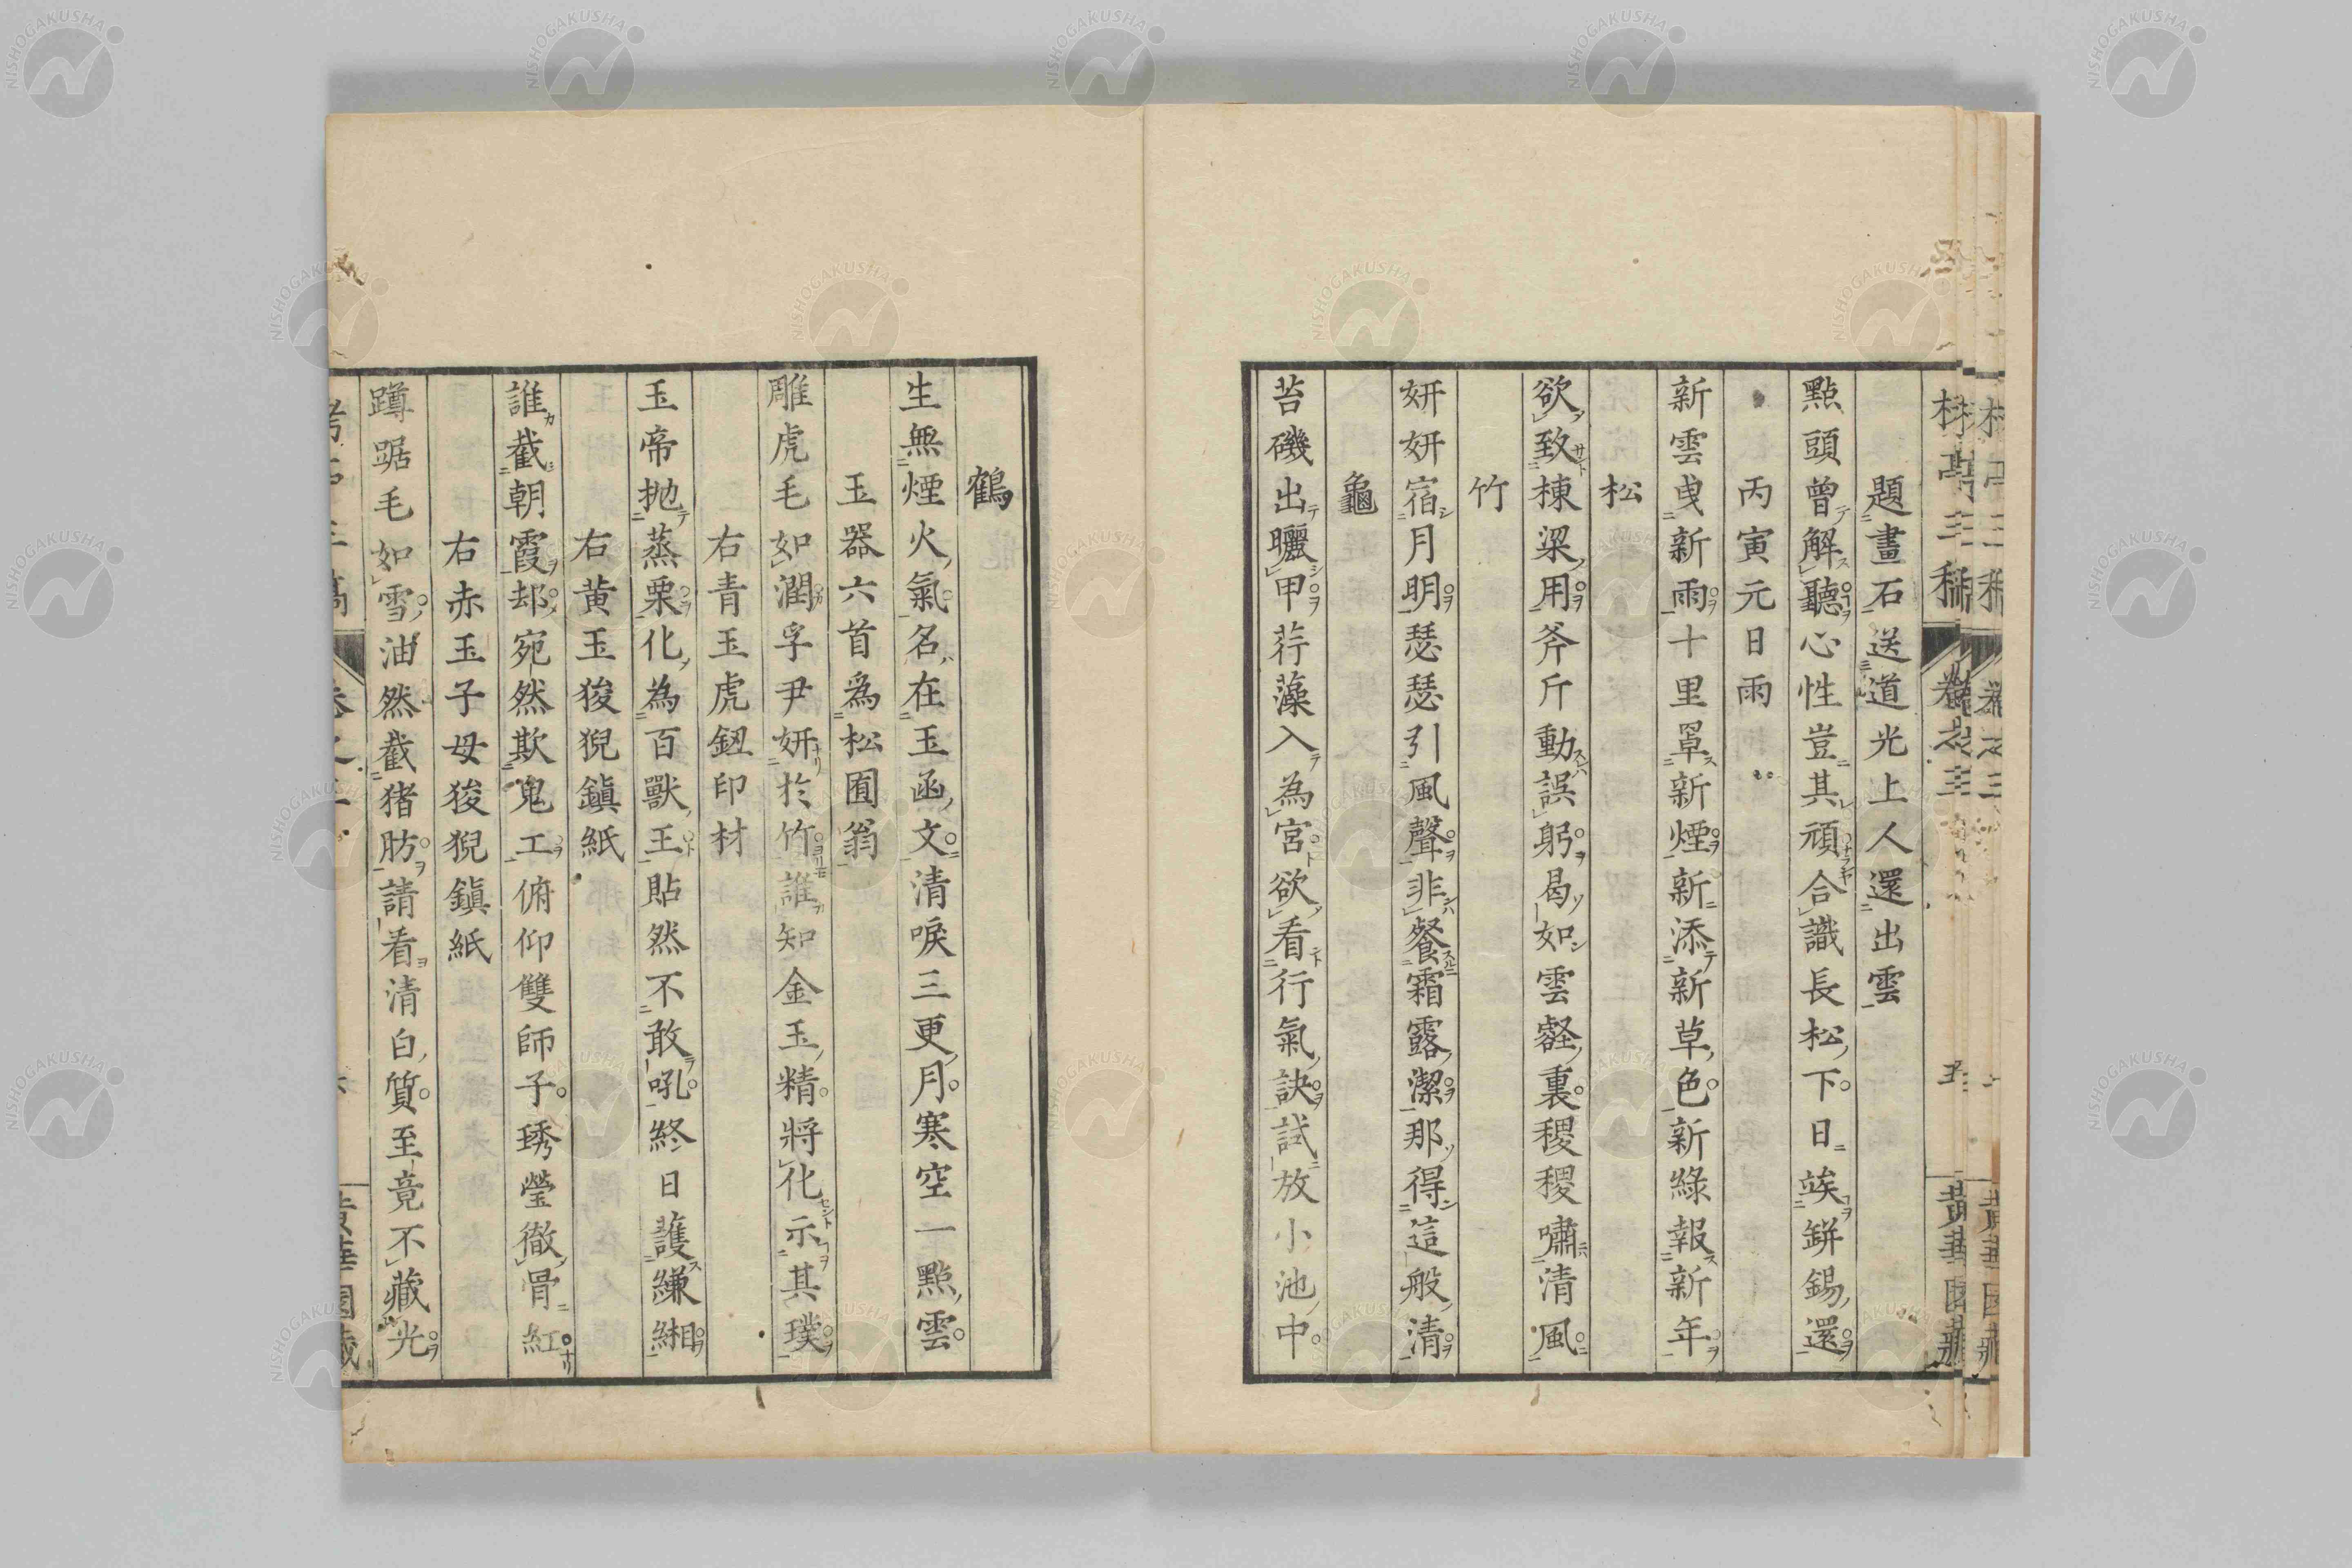 題畫石送道光上人還出雲
點頭曾解聽心性豈其頑合識長松下日竢鉼錫還
丙寅元日雨
新雲曳新雨十里罩新煙新添新草色新綠報新年
松
欲致棟梁用斧斤動誤躬曷如雲壑裏稷稷嘯清風
竹
妍妍宿月明瑟瑟引風聲非餐霜露潔那得這般清
龜
苔磯出曬甲荇藻入為宮欲看行氣訣試放小池中
鶴
生無煙火氣名在玉函文清唳三更月寒空一點雲
玉器六首爲松囿翁
雕虎毛如潤孚尹妍於竹誰知金玉精將化示其璞
右青玉虎鈕印材
玉帝抛蒸栗化為百獸王貼然不敢吼終日護縑緗
右黄玉狻猊鎮紙
誰截朝霞却宛然欺鬼工俯仰雙師子琇瑩徹骨紅
右赤玉子母狻猊鎮紙
蹲踞毛如雪油然截猪肪請看清白質至竟不藏光
NISHOGAKUSHA